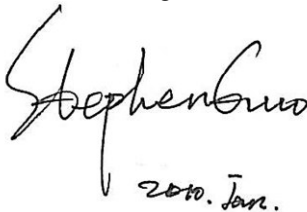 Stephen Guo
2010. Jan.